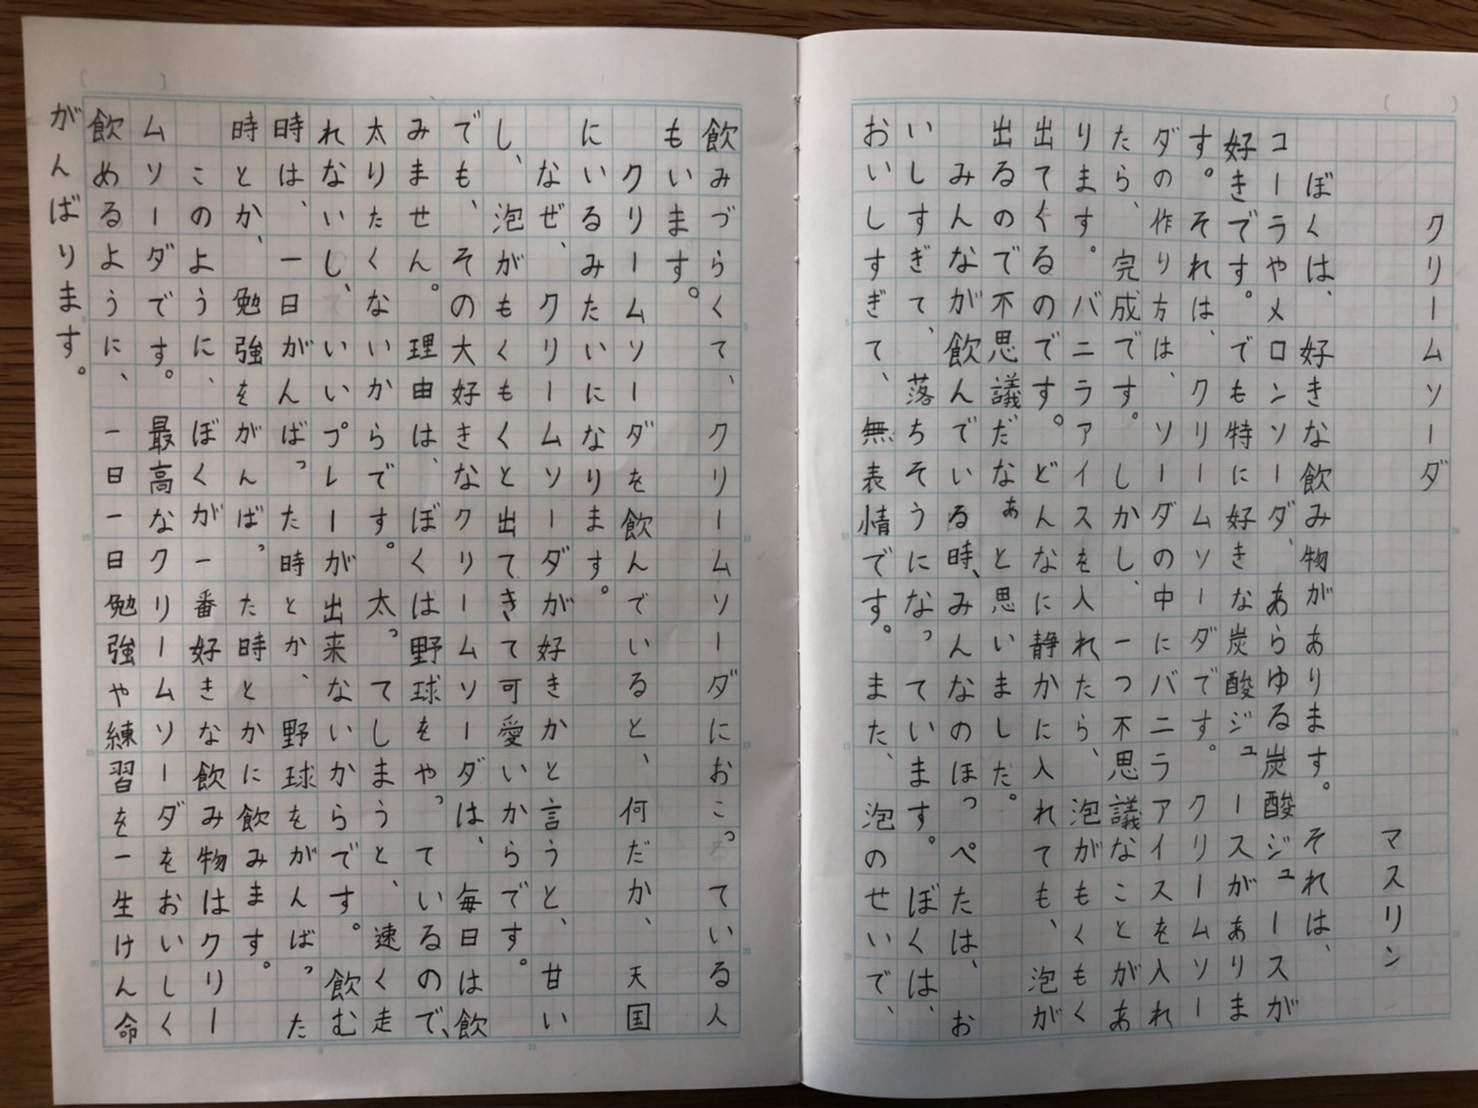 クリームソーダ
マスリン
ぼくは、好きな飲み物があります。それは、
コーラやメロンソーダ、あらゆる炭酸ジュースが
好きです。でも特に好きな炭酸ジュースがありま
す。それは、クリームソーダです。クリームソー
ダの作り方は、ソーダの中にバニラアイスを入れ
たら、完成です。しかし、一つ不思議なことがあ
ります。バニラアイスを入れたら、泡がもくもく
出てくるのです。どんなに静かに入れても、泡が
出るので不思議だなぁと思いました。
みんなが飲んでいる時、みんなのほっぺたは、お
いしすぎて、落ちそうになっています。ぼくは、
おいしすぎて、無表情です。また、泡のせいで、
飲みづらくて、クリームソーダにおこっている人
もいます。
クリームソーダを飲んでいると、何だか、天国
にいるみたいになります。
なぜ、クリームソーダが好きかと言うと、甘い
し、泡がもくもくと出てきて可愛いからです。
でも、その大好きなクリームソーダは、毎日は飲
みません。理由は、ぼくは野球をやっているので、
太りたくないからです。太ってしまうと、速く走
れないし、いいプレーが出来ないからです。飲む
時は、一日がんばった時とか、野球をがんばった
時とか、勉強をがんばった時とかに飲みます。
このように、ぼくが一番好きな飲み物はクリー
ムソーダです。最高なクリームソーダをおいしく
飲めるように、一日一日勉強や練習を一生けん命
がんばります。